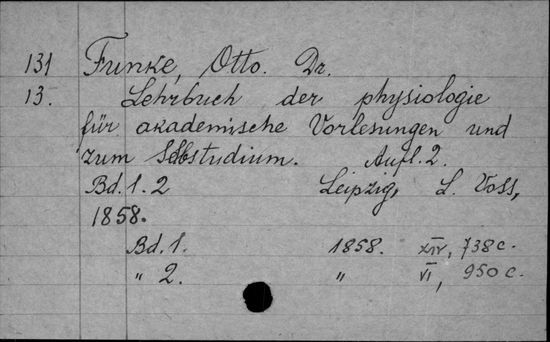 131 Funke, Otto. Dr.
13. Lehrbuch der physiologie
für akademische Vorlesungen und
zum Selbstudium. Aufl. 2.
Bd. 1. 2 Leipzig, L. Voss,
1858.
Bd. 1. 1858. XIV, 738 c.
" 2. " VI, 950 c.